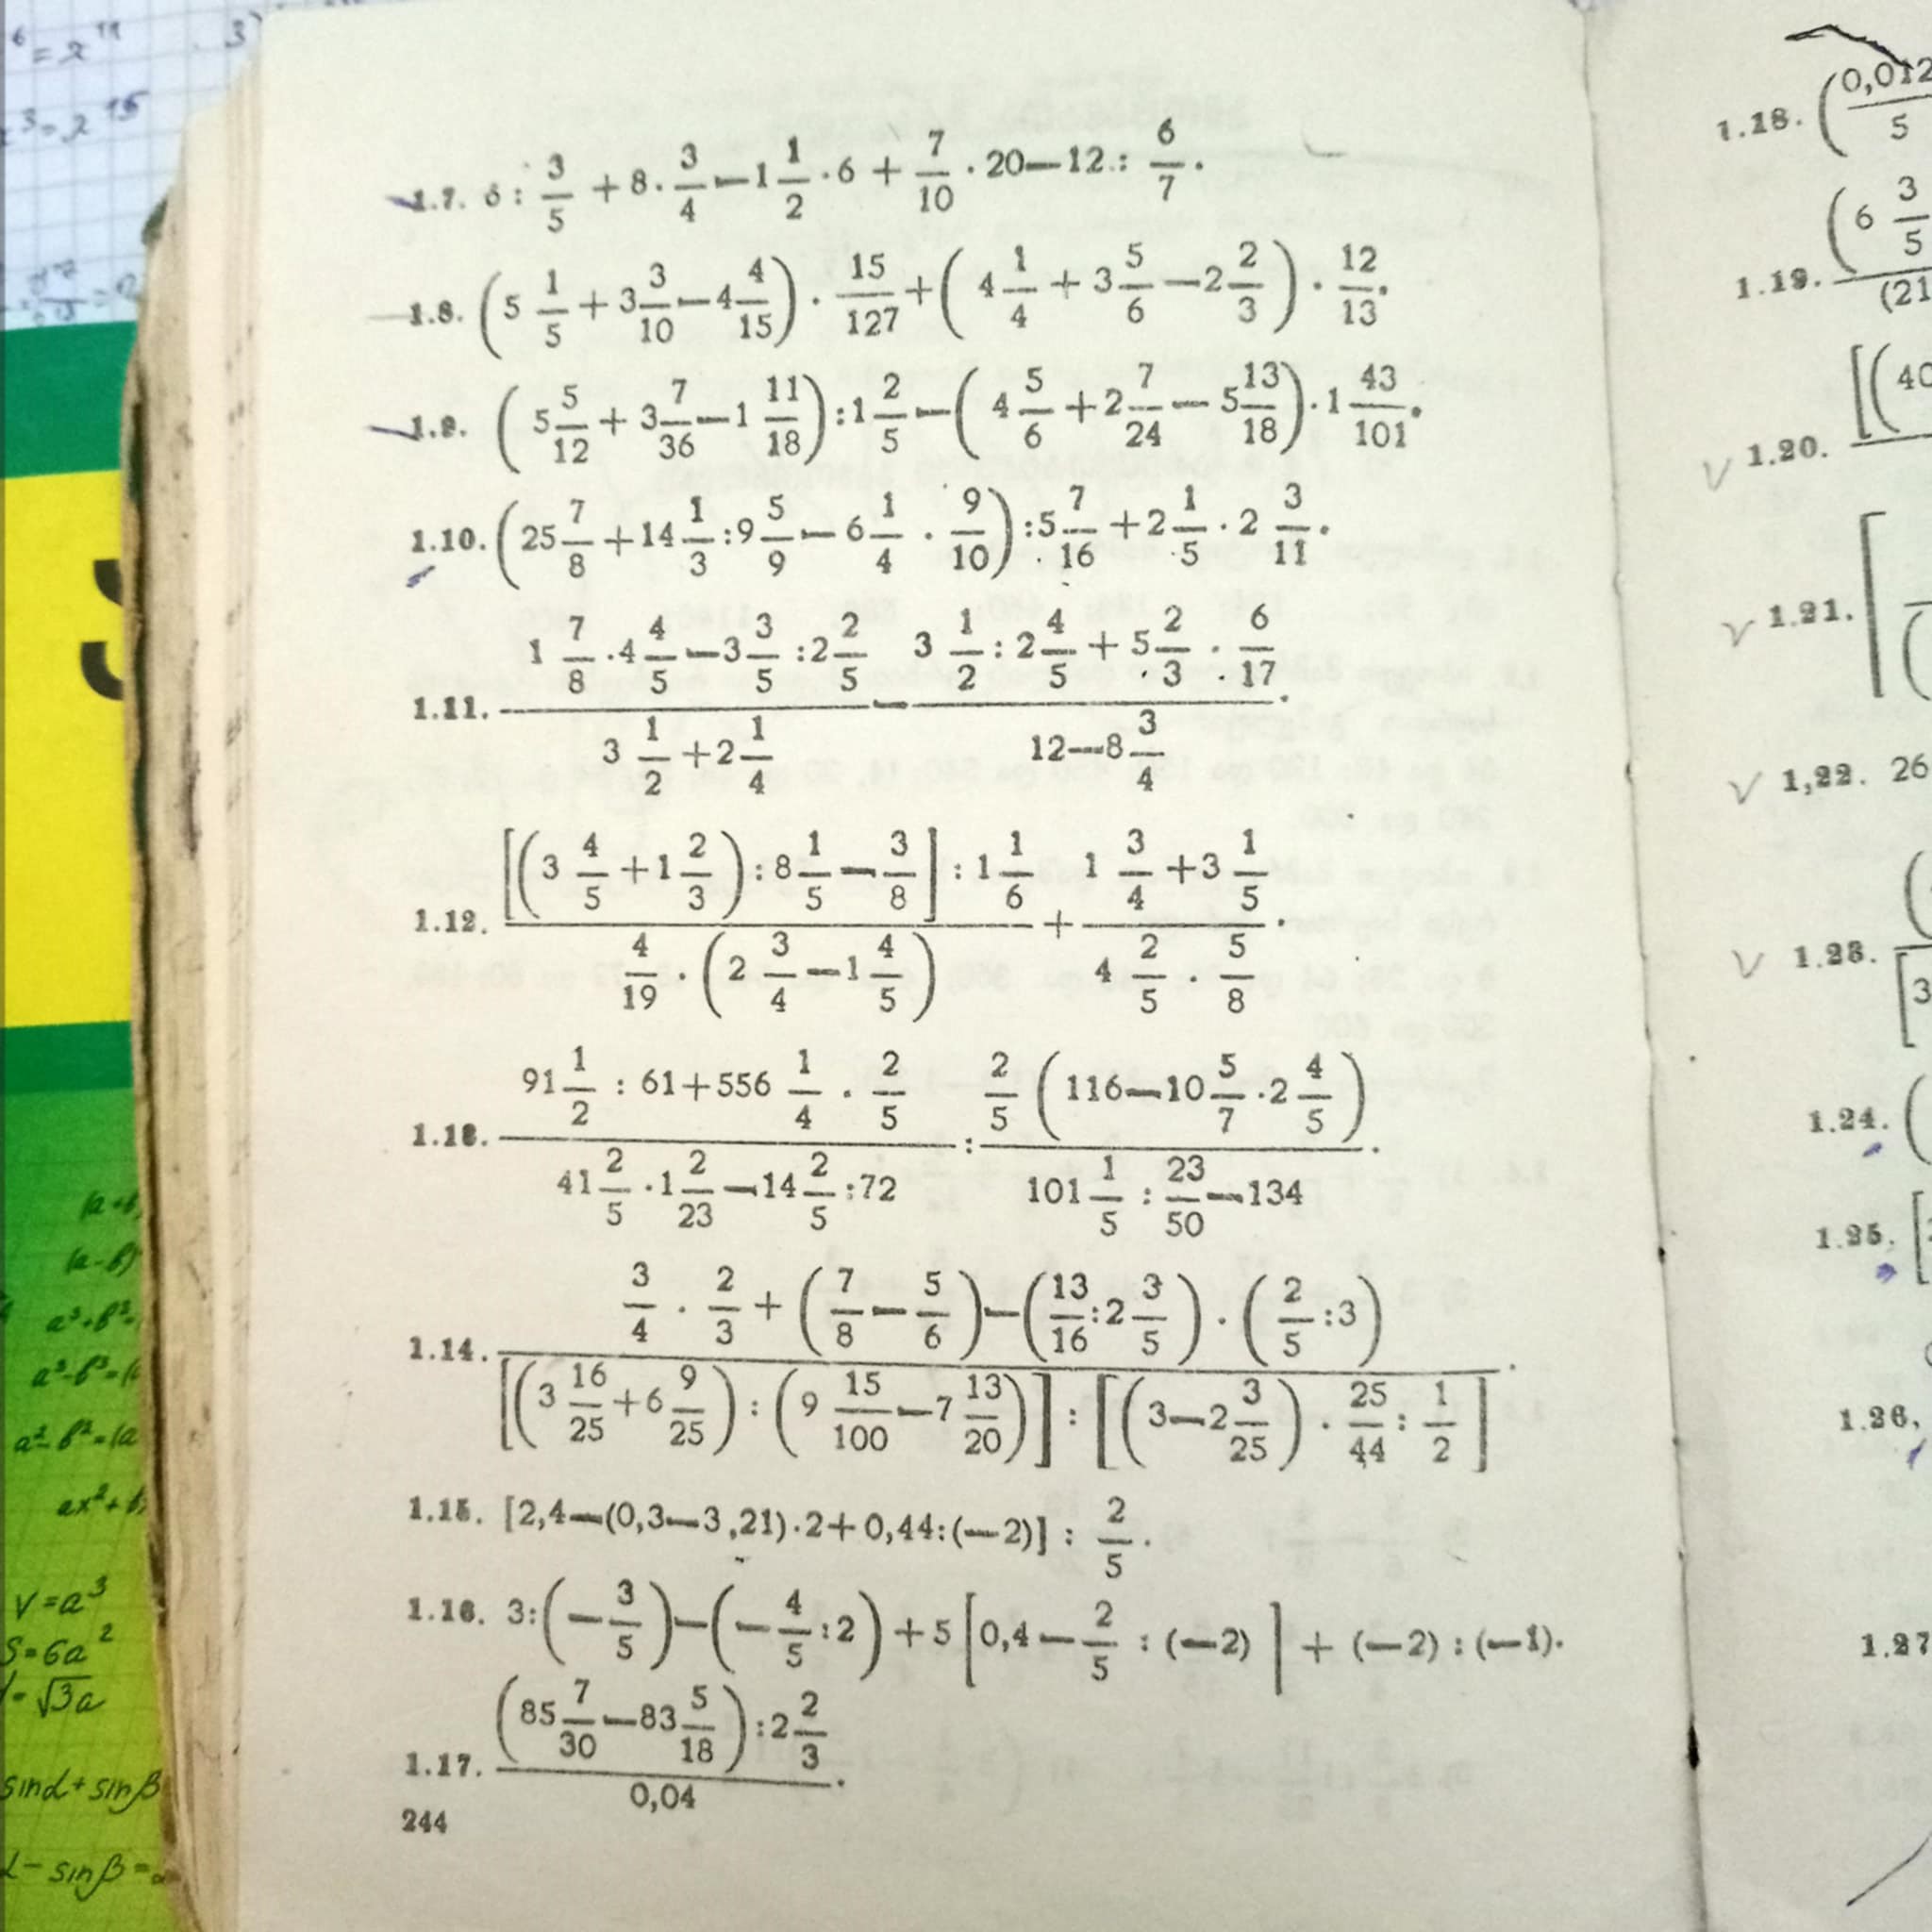 1.7. 6 : 3/5 + 8 · 3/4 — 1 1/2 · 6 + 7/10 · 20 — 12 : 6/7.
1.8. (5 1/5 + 3 3/10 — 4 4/15) · 15/127 + (4 1/4 + 3 5/6 — 2 2/3) · 12/13.
1.9. (5 5/12 + 3 7/36 — 1 11/18) : 1 2/5 — (4 5/6 + 2 7/24 — 5 13/18) · 1 43/101.
1.10. (25 7/8 + 14 1/3 : 9 5/9 — 6 1/4 · 9/10) : 5 7/16 + 2 1/5 · 2 3/11.
1.11. (1 7/8 · 4 4/5 — 3 3/5 : 2 2/5)/(3 1/2 + 2 1/4) — (3 1/2 : 2 4/5 + 5 2/3 · 6/17)/(12 — 8 3/4).
1.12. ([(3 4/5 + 1 2/3) : 8 1/5 — 3/8] : 1 1/6)/(4/19 · (2 3/4 — 1 4/5)) + (1 3/4 + 3 1/5)/(4 2/5 · 5/8).
1.13. (91 1/2 : 61 + 556 1/4 · 2/5)/(41 2/5 · 1 2/23 — 14 2/5 : 72) : (2/5 (116 — 10 5/7 · 2 4/5))/(101 1/5 : 23/50 — 134).
1.14. (3/4 · 2/3 + (7/8 — 5/6) — (13/16 : 2 3/5) · (2/5 : 3))/([(3 16/25 + 6 9/25) : (9 15/100 — 7 13/20)] : [(3 — 2 3/25) · 25/44 : 1/2]).
1.15. [2,4 — (0,3 — 3,21) · 2 + 0,44 : (—2)] : 2/5.
1.16. 3 : (— 3/5) — (— 4/5 : 2) + 5 [0,4 — 2/5 : (—2)] + (—2) : (—1).
1.17. ((85 7/30 — 83 5/18) : 2 2/3)/0,04.
244
1.18. (0,012/5
1.19. (6 3/5
(21
1.20. [(40
1.21.
1,22. 26
1.23.
[3
1.24. (
1.25. [
1.26,
1.27
V=a³
S=6a²
=√3a
sinα+sinβ
α-sinβ=